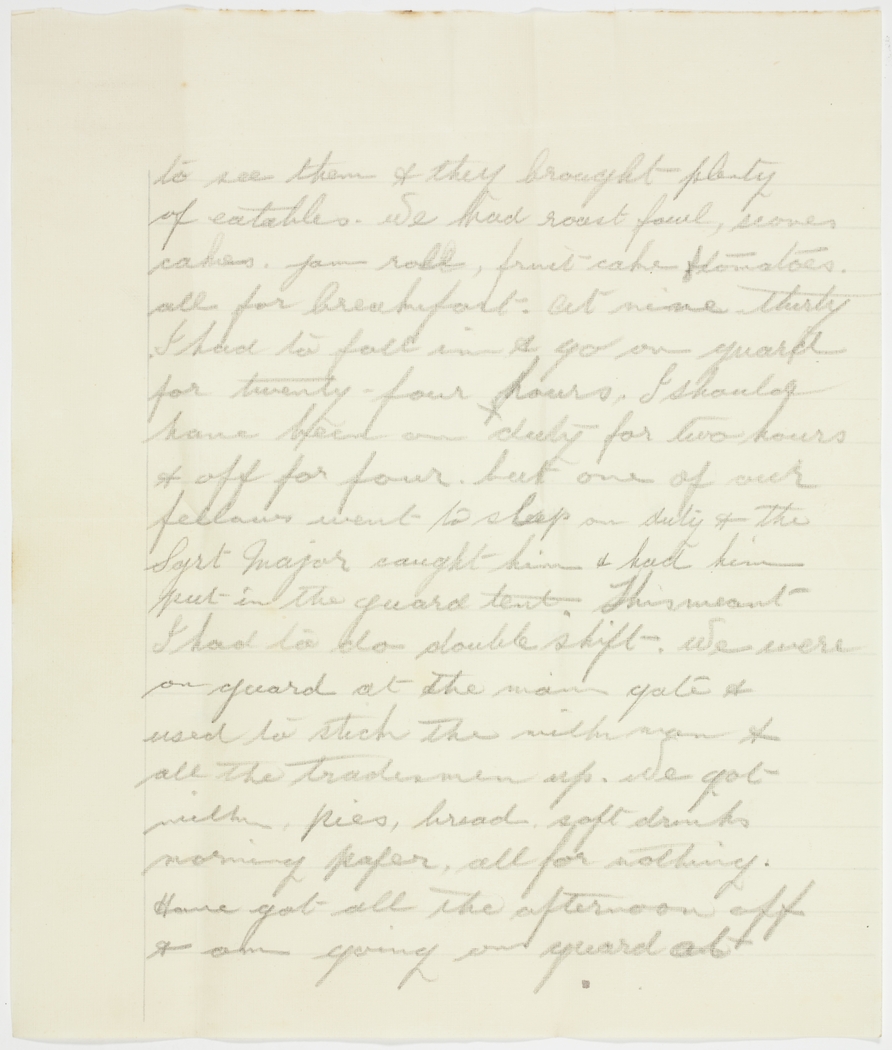 to see them & they brought plenty
of eatables. We had roast fowl, scones
cakes. jam roll, fruit cake & tomatoes.
all for breakfast. At nine thirty
I had to fall in & go on guard
for twenty-four hours. I should
have been on duty for two hours
& off for four. but one of our
fellows went to sleep on duty & the
Sgrt Major caught him & had him
put in the guard tent. This meant
I had to do double shift. We were
on guard at the main gate &
used to stick the milk man &
all the tradesmen up. We got
milk, pies, bread. soft drinks
morning paper, all for nothing.
Have got all the afternoon off
& am going on guard at